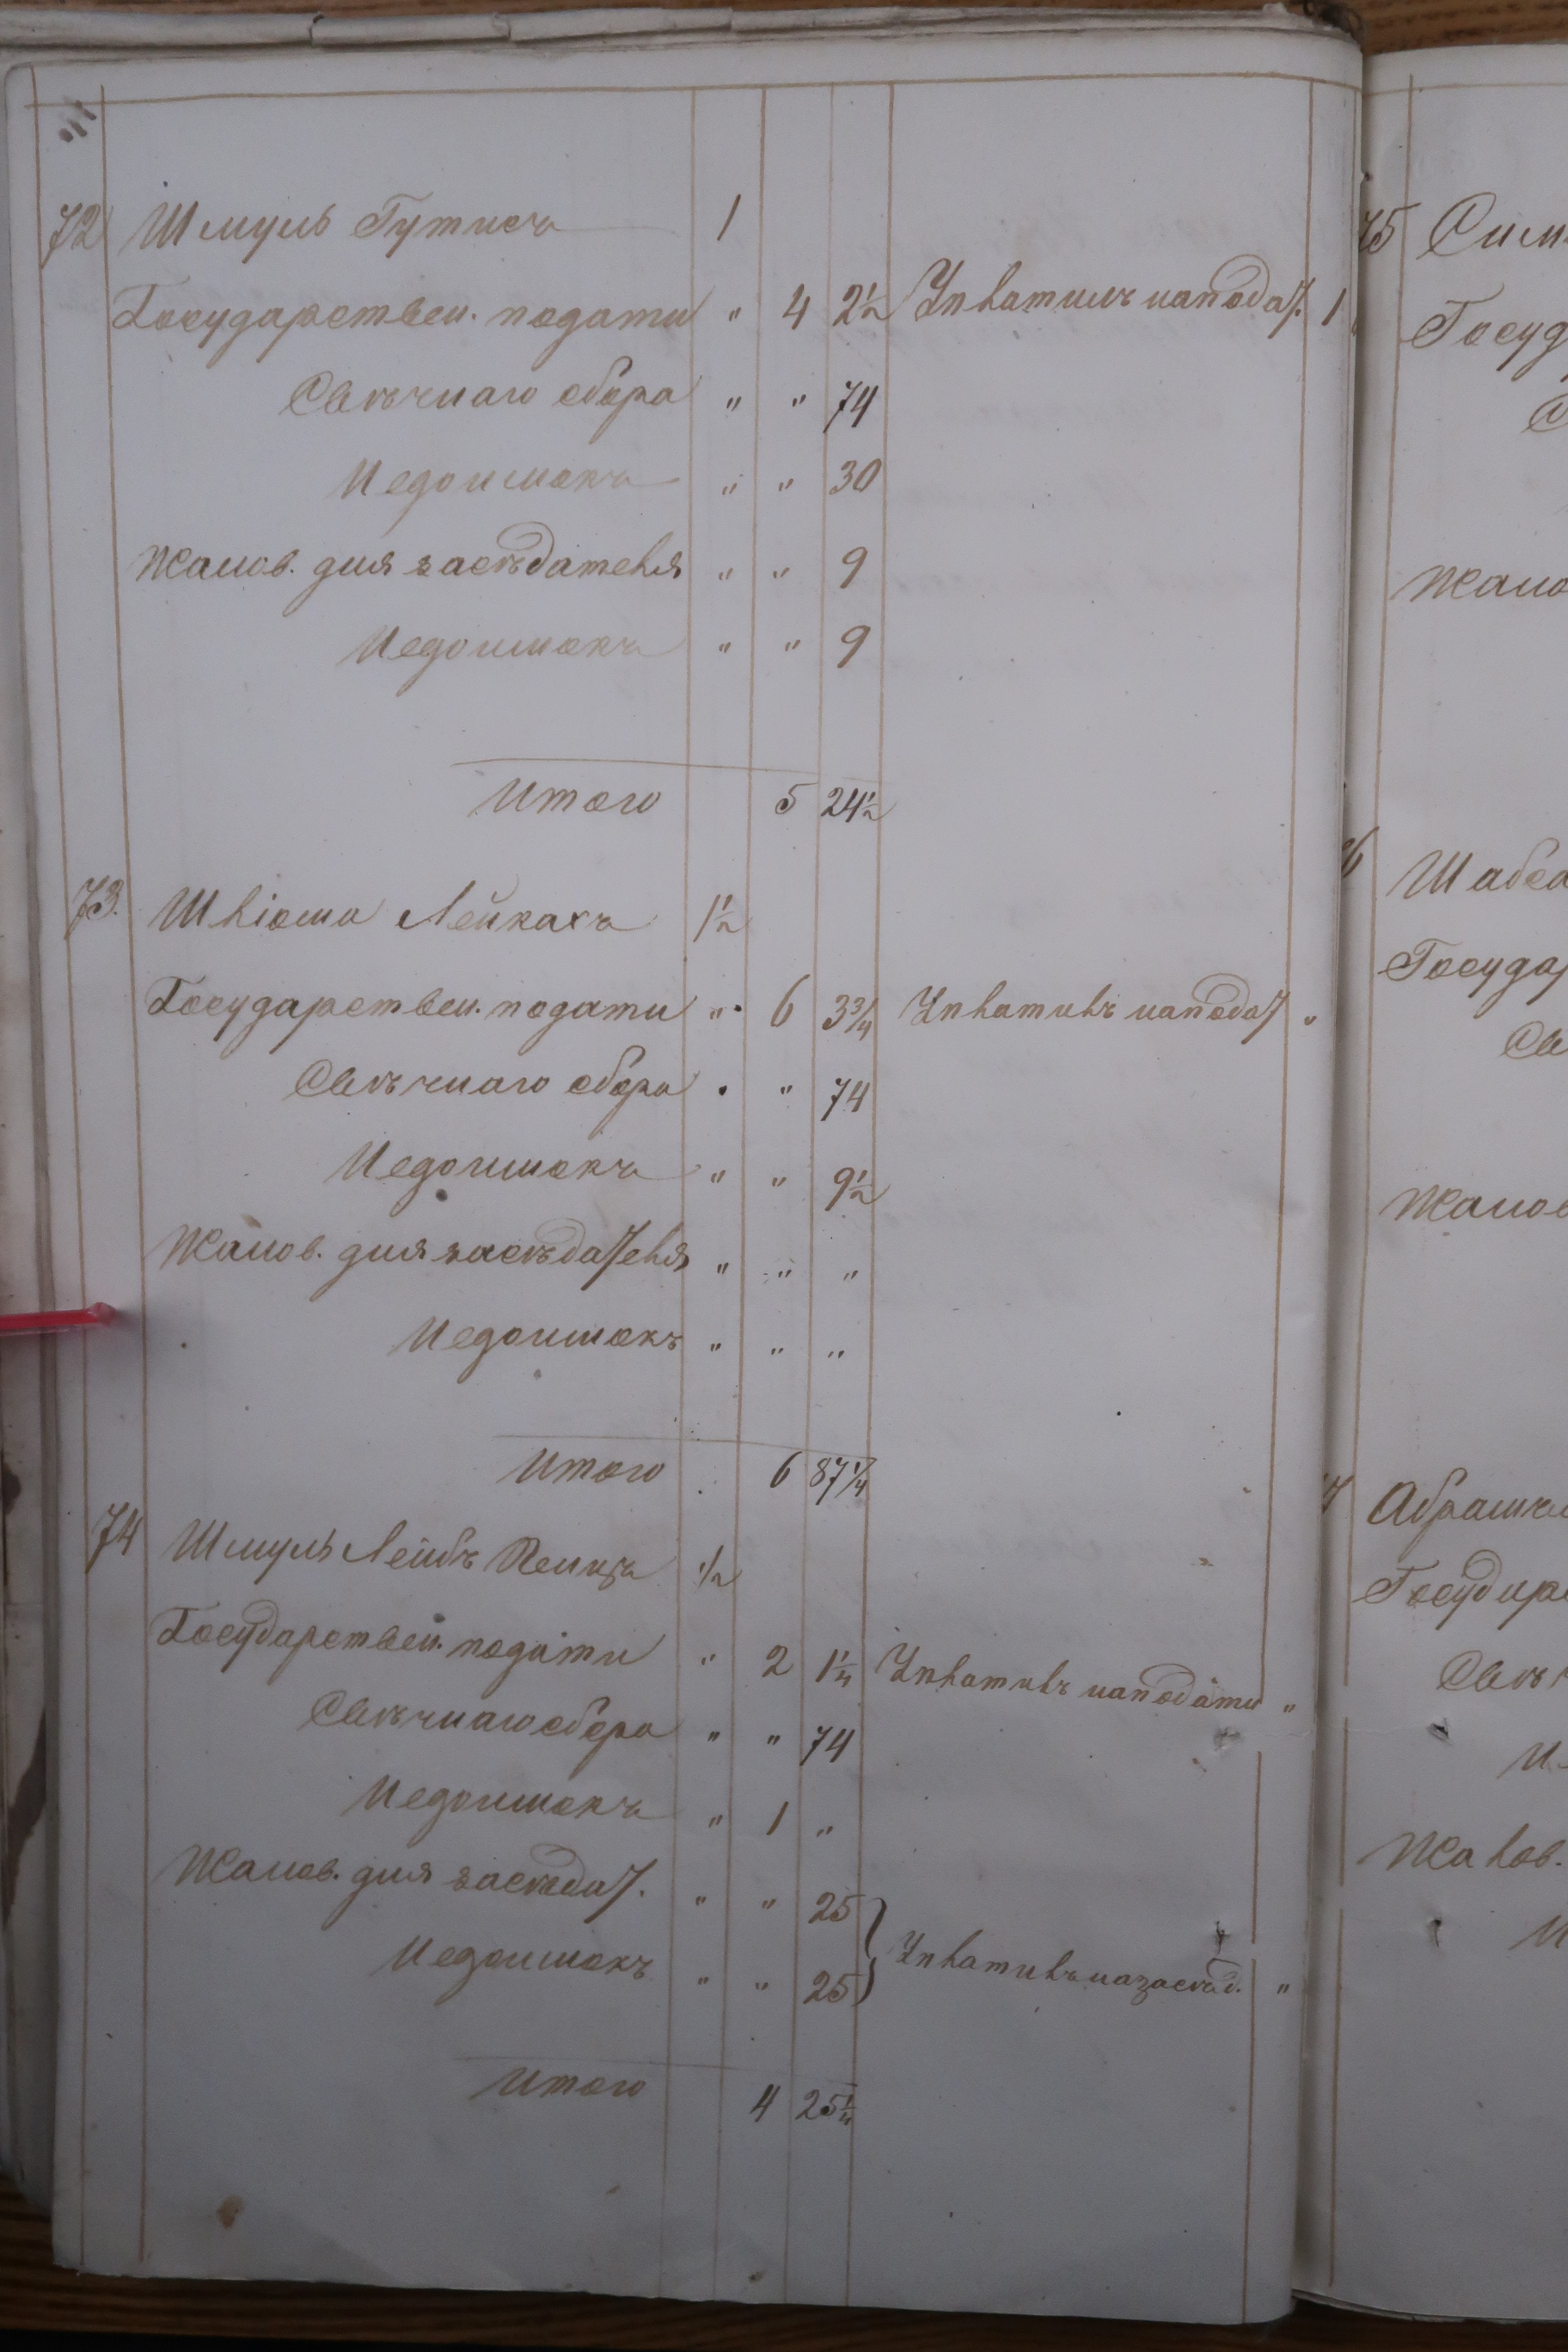 72 Шмуль Гутисъ 1
Государствен. подати " 4 2½ Уплатилъ на подат. 1
Свѣчнаго сбора " " 74
Недоимокъ " " 30
Жалов. для засѣдателя " " 9
Недоимокъ " " 9
Итого 5 24½
73. Шліома Лейкахъ 1½
Государствен. подати " 6 3¾ Уплатилъ на подат "
Свѣчнаго сбора " " 74
Недоимокъ " " 9½
Жалов. для засѣдателя " " "
Недоимокъ " " "
Итого 6 87¼
74 Шмуль Лейбъ ½
Государствен. подати " 2 1¼ Уплатилъ на подати "
Свѣчнаго сбора " " 74
Недоимокъ " 1 "
Жалов. для засѣдат. " " 25
Недоимокъ " " 25 Уплатилъ на засѣд. "
Итого 4 25¼
75 Сим
Госуд
Жало
Шабса
Государ
Св
Жалов
Абрамъ
Государ
Свѣч
Жалов.